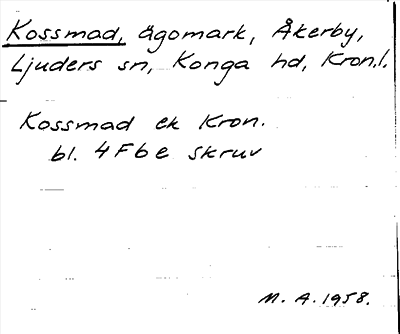 Kossmad, ägomark, Åkerby,
Ljuders sn, Konga hd, Kron.l.
Kossmad ek Kron.
bl. 4F6e Skruv
M. A. 1958.